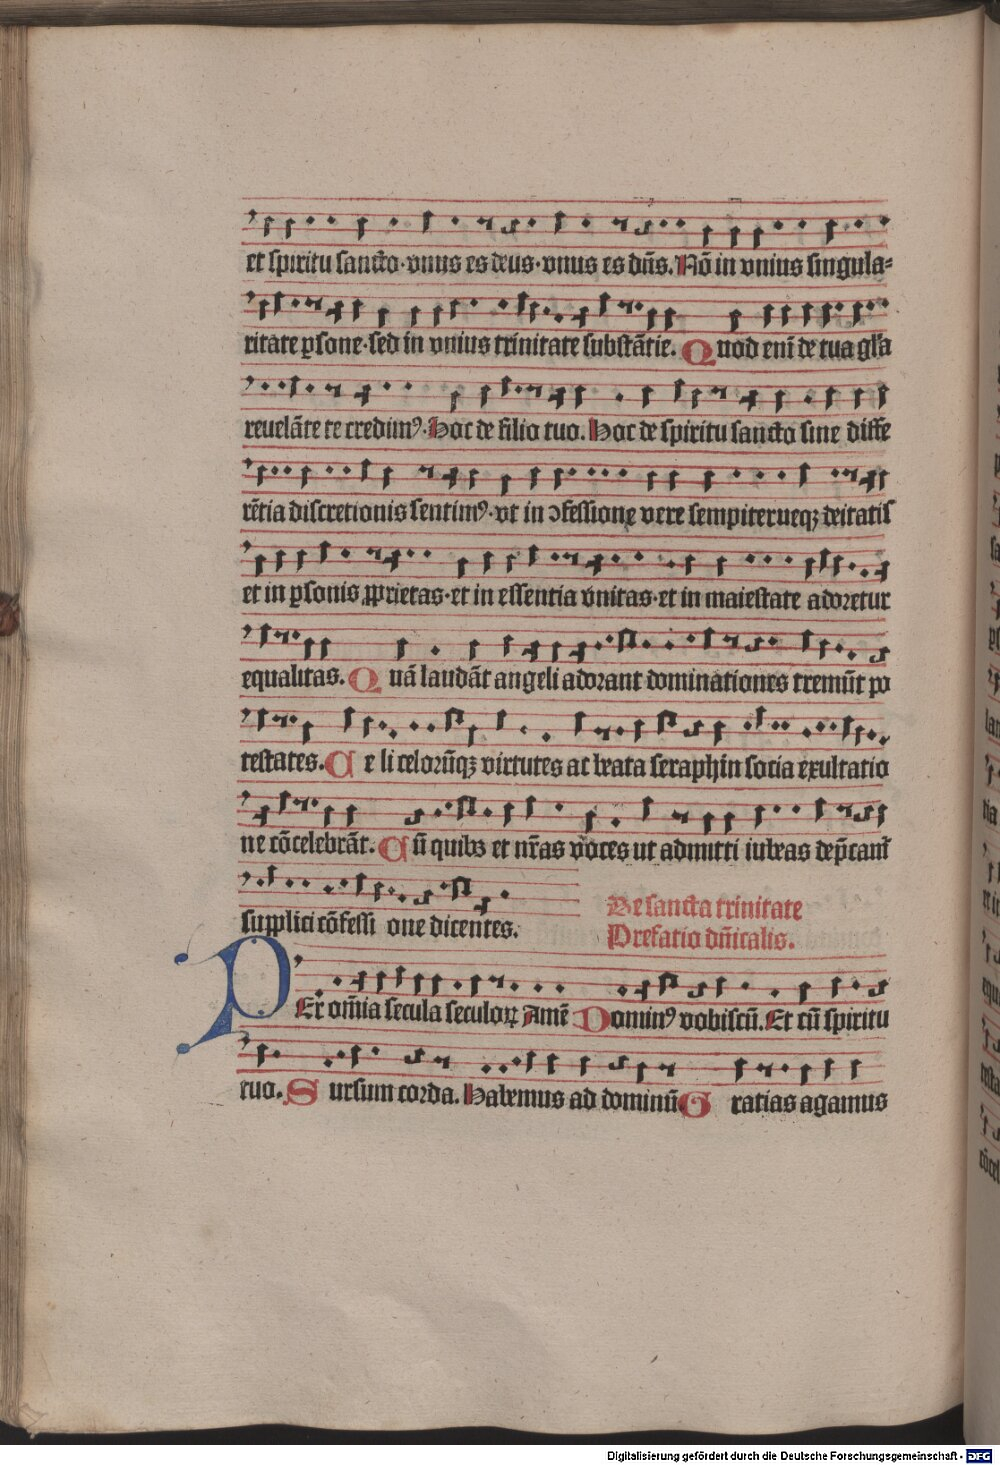 et spiritu sancto·vnus es deus·vnus es dn̄s. Nō in vnius singula-
ritate ꝑsone·sed in vnius trinitate substātie. Quod enī de tua gl'a
reuelāte te credimꝰ·Hoc de filio tuo. Hoc de spiritu sancto sine diffe
rētia discretionis sentimꝰ·vt in ɔfessione vere sempiterneqꝫ deitatis
et in ꝑsonis ꝓprietas·et in essentia vnitas·et in maiestate adoretur
equalitas. Quā laudāt angeli adorant dominationes tremūt po
testates. Celi celorūqꝫ virtutes ac beata seraphin socia exultatio
ne cōcelebrāt. Cū quibꝫ et nr̄as voces ut admitti iubeas dep̄cam̄
supplici cōfessione dicentes.
De sancta trinitate
Prefatio dn̄icalis.
PEr om̄ia secula seculoꝝ Amē Dominꝰ vobiscū. Et cū spiritu
tuo. Sursum corda. Habemus ad dominū Gratias agamus
Digitalisierung gefördert durch die Deutsche Forschungsgemeinschaft - DFG